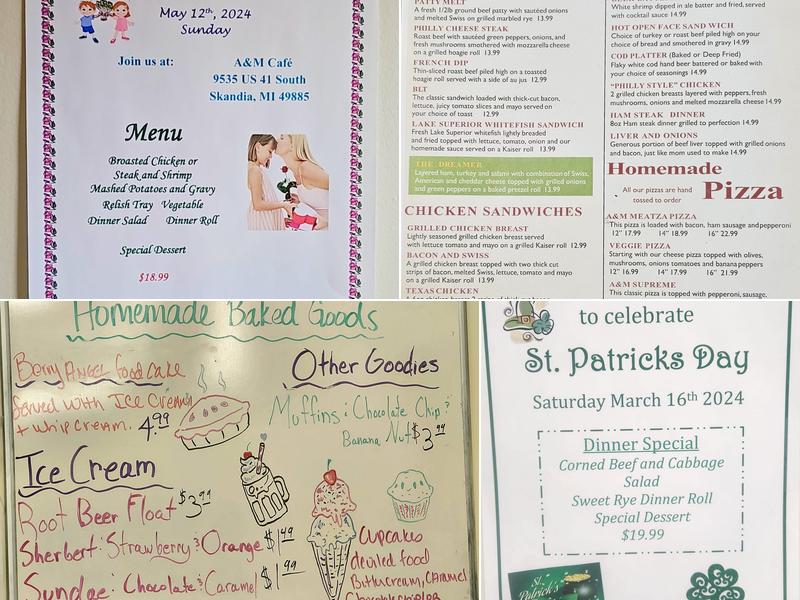 May 12th, 2024
Sunday
Join us at:
A&M Café
9535 US 41 South
Skandia, MI 49885
Menu
Broasted Chicken or
Steak and Shrimp
Mashed Potatoes and Gravy
Relish Tray Vegetable
Dinner Salad Dinner Roll
Special Dessert
$18.99
PATTY MELT
A fresh 1/2lb ground beef patty with sautéed onions
and melted Swiss on grilled marbled rye 13.99
PHILLY CHEESE STEAK
Roast beef with sautéed green peppers, onions, and
fresh mushrooms smothered with mozzarella cheese
on a grilled hoagie roll 13.99
FRENCH DIP
Thin-sliced roast beef piled high on a toasted
hoagie roll served with a side of au jus 12.99
BLT
The classic sandwich loaded with thick-cut bacon,
lettuce, juicy tomato slices and mayo served on
your choice of toast 12.99
LAKE SUPERIOR WHITEFISH SANDWICH
Fresh Lake Superior whitefish lightly breaded
and fried topped with lettuce, tomato, onion and our
homemade sauce served on a Kaiser roll 13.99
THE DREAMER
Layered ham, turkey and salami with combination of Swiss,
American and cheddar cheese topped with grilled onions
and green peppers on a baked pretzel roll 13.99
CHICKEN SANDWICHES
GRILLED CHICKEN BREAST
Lightly seasoned grilled chicken breast served
with lettuce tomato and mayo on a grilled Kaiser roll 12.99
BACON AND SWISS
A grilled chicken breast topped with two thick cut
strips of bacon, melted Swiss, lettuce, tomato and mayo
on a grilled Kaiser roll 13.99
TEXAS CHICKEN
White shrimp dipped in ale batter and fried, served
with cocktail sauce 14.99
HOT OPEN FACE SANDWICH
Choice of turkey or roast beef piled high on your
choice of bread and smothered in gravy 14.99
COD PLATTER (Baked or Deep Fried)
Flaky white cod hand beer battered or baked with
your choice of seasonings 14.99
"PHILLY STYLE" CHICKEN
2 grilled chicken breasts layered with peppers, fresh
mushrooms, onions and melted mozzarella cheese 14.99
HAM STEAK DINNER
8oz Ham steak dinner grilled to perfection 14.99
LIVER AND ONIONS
Generous portion of beef liver topped with grilled onions
and bacon, just like mom used to make 14.99
Homemade
Pizza
All our pizzas are hand
tossed to order
A&M MEATZA PIZZA
This pizza is loaded with bacon, ham, sausage and pepperoni
12" 17.99 14" 18.99 16" 22.99
VEGGIE PIZZA
Starting with our cheese pizza topped with olives,
mushrooms, onions tomatoes and banana peppers
12" 16.99 14" 17.99 16" 21.99
A&M SUPREME
This classic pizza is topped with pepperoni, sausage,
Homemade Baked Goods
Berry Angel food cake
Served with Ice Cream
+ whip cream. 4.99
Ice Cream
Root Beer Float $3.99
Sherbert: Strawberry & Orange $1.49
Sundae: Chocolate & Caramel $1.99
Other Goodies
Muffins: Chocolate Chip &
Banana Nut $3.99
Cupcakes
deviled food
Buttercream, Caramel
to celebrate
St. Patricks Day
Saturday March 16th 2024
Dinner Special
Corned Beef and Cabbage
Salad
Sweet Rye Dinner Roll
Special Dessert
$19.99
St.
Patrick's